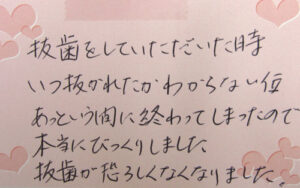 抜歯をしていただいた時
いつ抜かれたかわからない位
あっという間に終わってしまったので
本当にびっくりしました
抜歯が恐ろしくなくなりました。